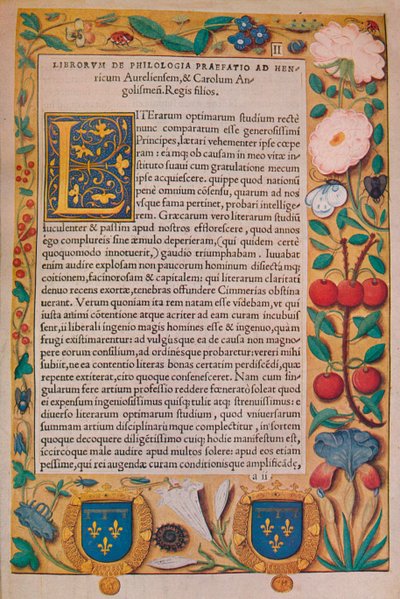 II
LIBRORVM DE PHILOLOGIA PRAEFATIO AD HEN-
ricum Aureliensem, & Carolum An-
golismeñ. Regis filios.
LITErarum optimarum studium rectè
nunc comparatum esse generosissimi
Principes, lætari vehementer ipse cœpe
ram: ea mq; ob causam in meo vitæ in-
stituto suaui cum gratulatione mecum
ipse acquiescere. quippe quod nationũ
penè omnium cõsensu, quarum ad nos
vsque fama pertinet, probari intellige
rem. Græcarum vero literarum studiũ
luculenter & passim apud nostros efflorescere, quod annos
ego complureis sine æmulo deperieram, (qui quidem certè
quoquomodo innotuerit,) gaudio triumphabam. Iuuabat
enim audire explosam non paucorum hominum disiectã mq;
coitionem, facinorosam & capitalem: qui literarum claritati
denuo recens exortæ, tenebras offundere Cimmerias obstina
uerant. Verum quoniam ita rem natam esse vidēbam, vt qui
iusta animi cõtentione atque acriter ad eam curam incubuis
sent, ii liberali ingenio magis homines esse & ingenuo, quàm
frugi existimarentur: ad vulgúsque ea de causa non magno-
pere eorum consilium, ad ordinésque probaretur: vereri mihi
subiit, ne ea contentio literas bonas certatim perdiscēdi, quæ
repente extiterat, cito quoque consenesceret. Nam cum sin-
gularum ferè artium professio reddere fœneratò soleat quod
ei expensum ingeniosissimus quisq; tulit atq; strenuissimus: e
diuerso literarum optimarum studium, quod vniuersarum
summam artium disciplinarúmque complectitur, in sortem
quoque decoquere diligētissimo cuiq; hodie manifestum est,
iccircóque male audire apud multos solere: apud eos etiam
pessime, qui rei augendæ curam conditionisque amplificãdę,
a ii